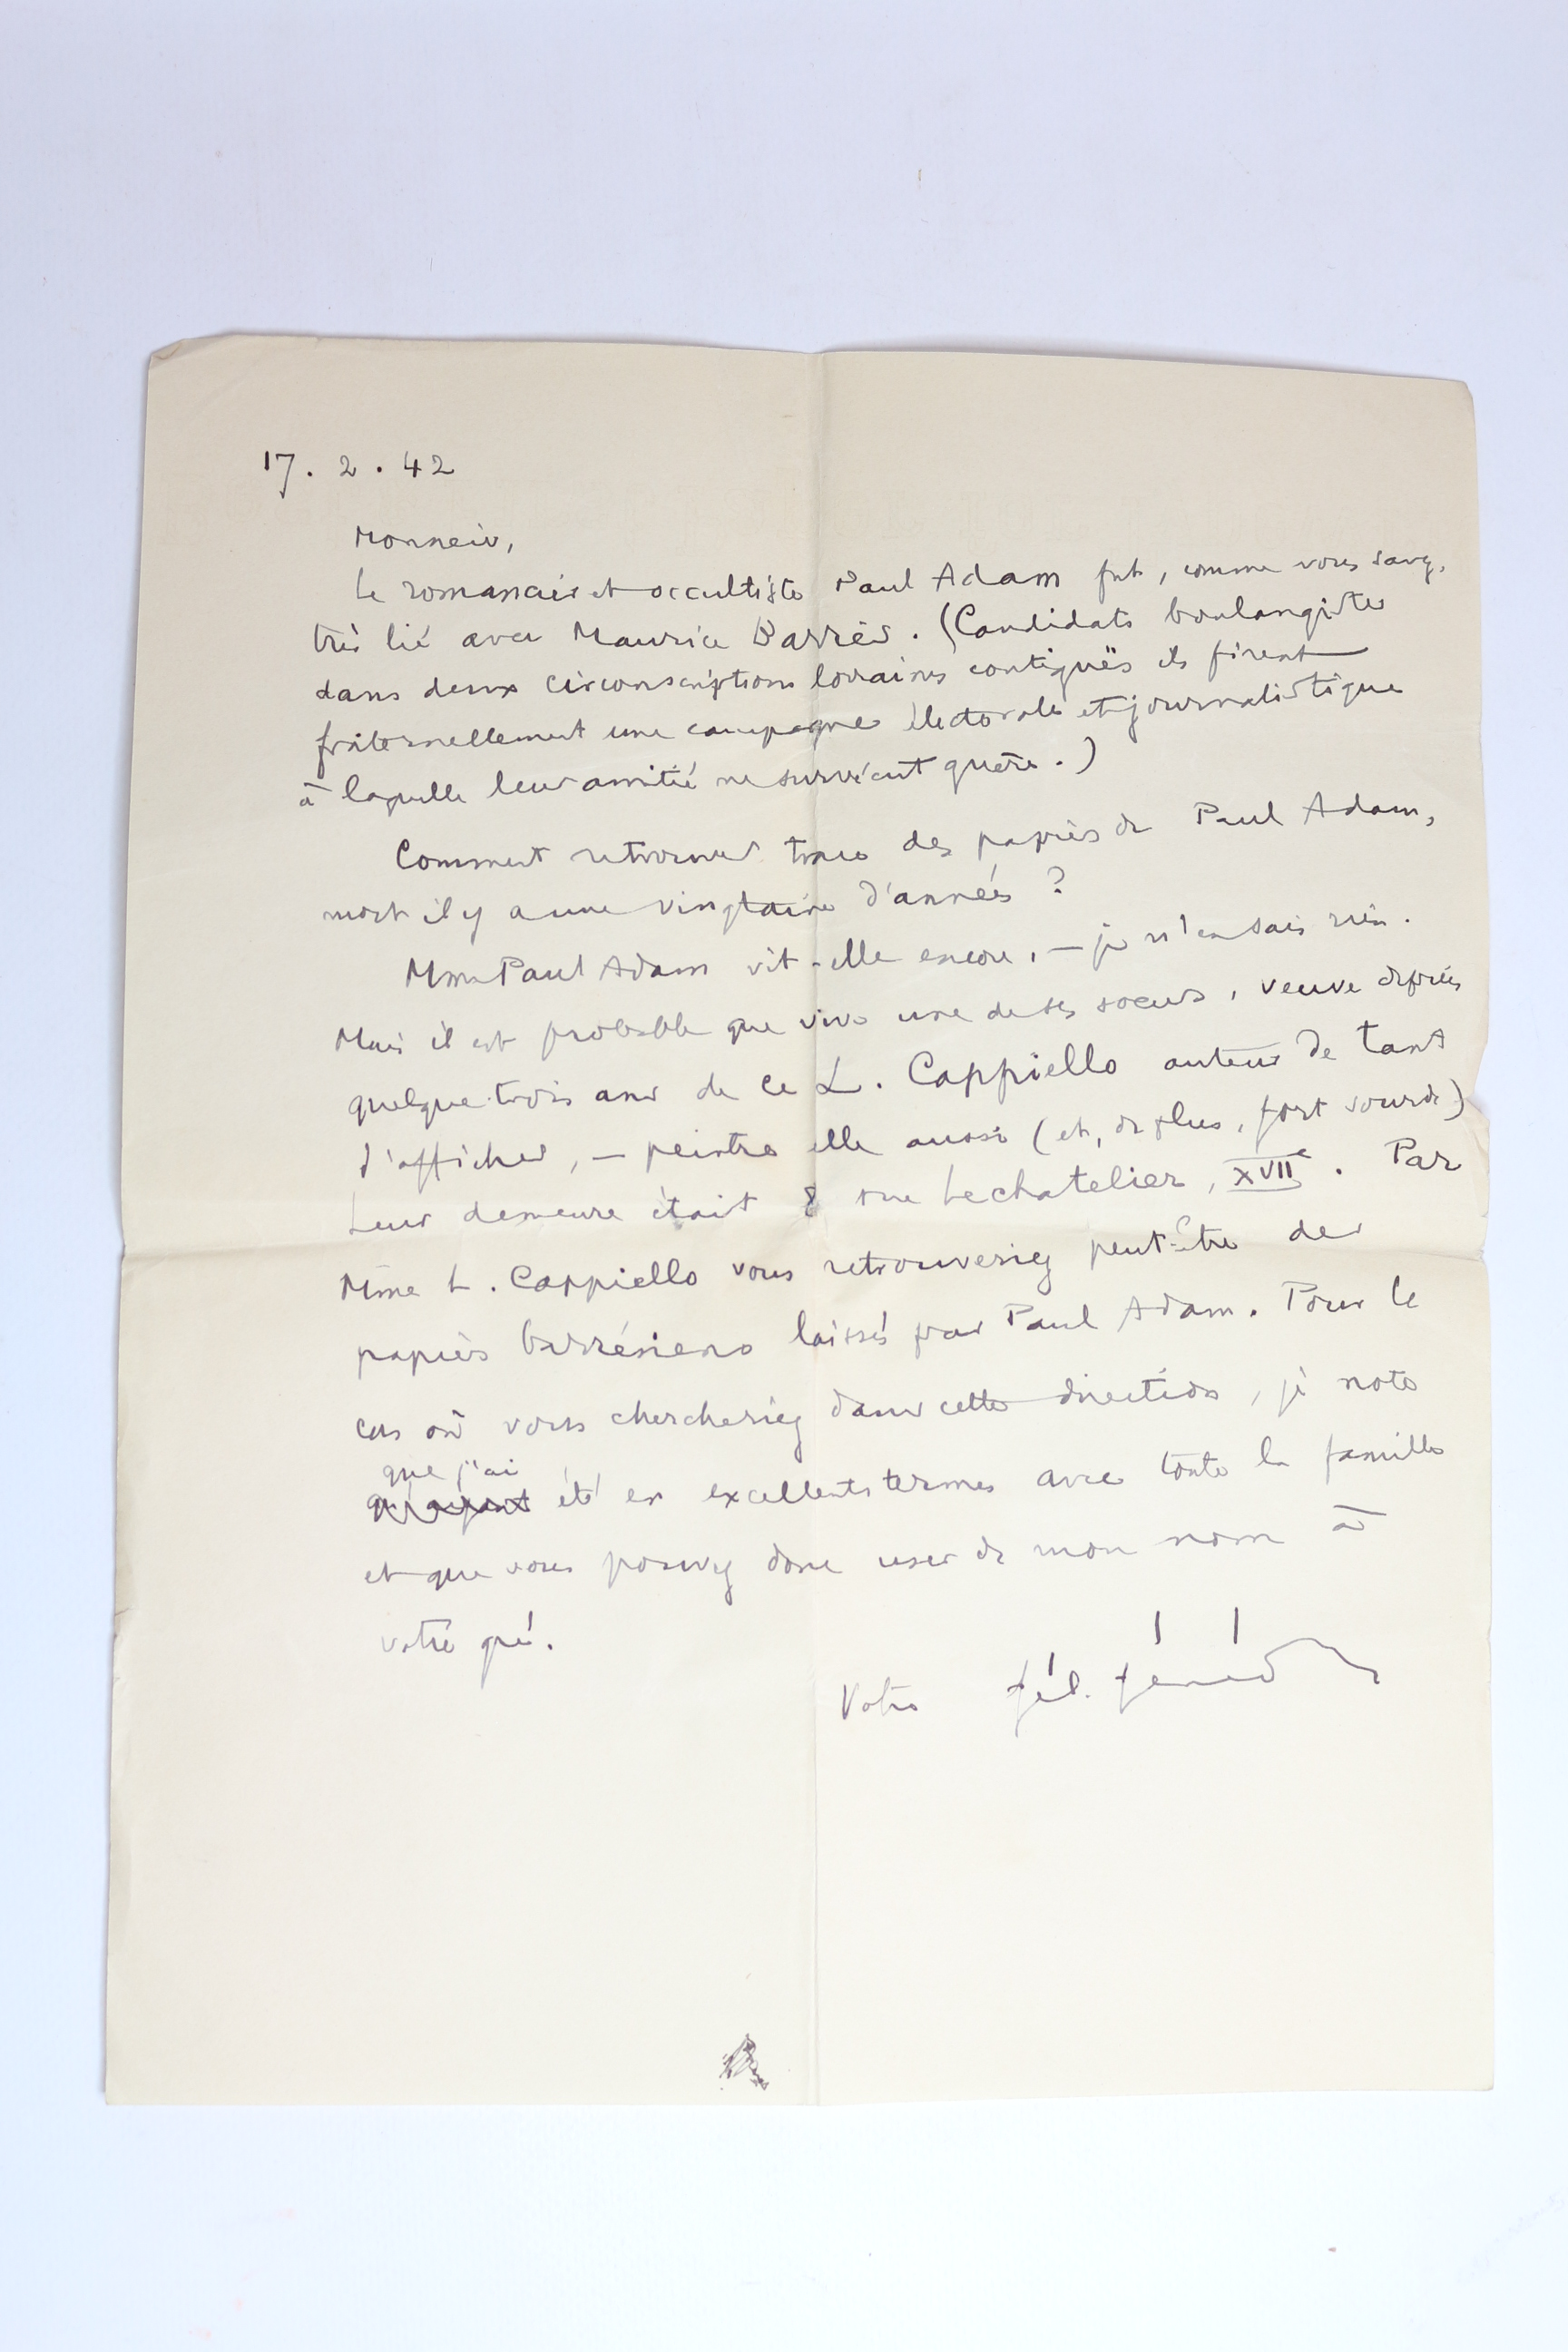 17. 2. 42
Monsieur,
Le romancier et occultiste Paul Adam fut, comme vous savez,
très lié avec Maurice Barrès. (Candidats boulangistes
dans deux circonscriptions lorraines contiguës ils firent
fraternellement une campagne électorale et journalistique
à laquelle leur amitié ne survécut guère.)
Comment retrouver trace des papiers de Paul Adam,
mort il y a une vingtaine d'années ?
Mme Paul Adam vit-elle encore, — je n'en sais rien.
Mais il est probable que vive une de ses soeurs, veuve depuis
quelque trois ans de ce L. Cappiello auteur de tant
d'affiches, — peintre elle aussi (et, de plus, fort sourde)
Leur demeure était 8 rue Lechatelier, XVIIe. Par
Mme L. Cappiello vous retrouveriez peut-être des
papiers barrésiens laissés par Paul Adam. Pour le
cas où vous chercheriez dans cette direction, je note
que j'ai
qu'ayant été en excellents termes avec toute la famille
et que vous pouvez donc user de mon nom à
votre gré.
Votre fél. fénéon